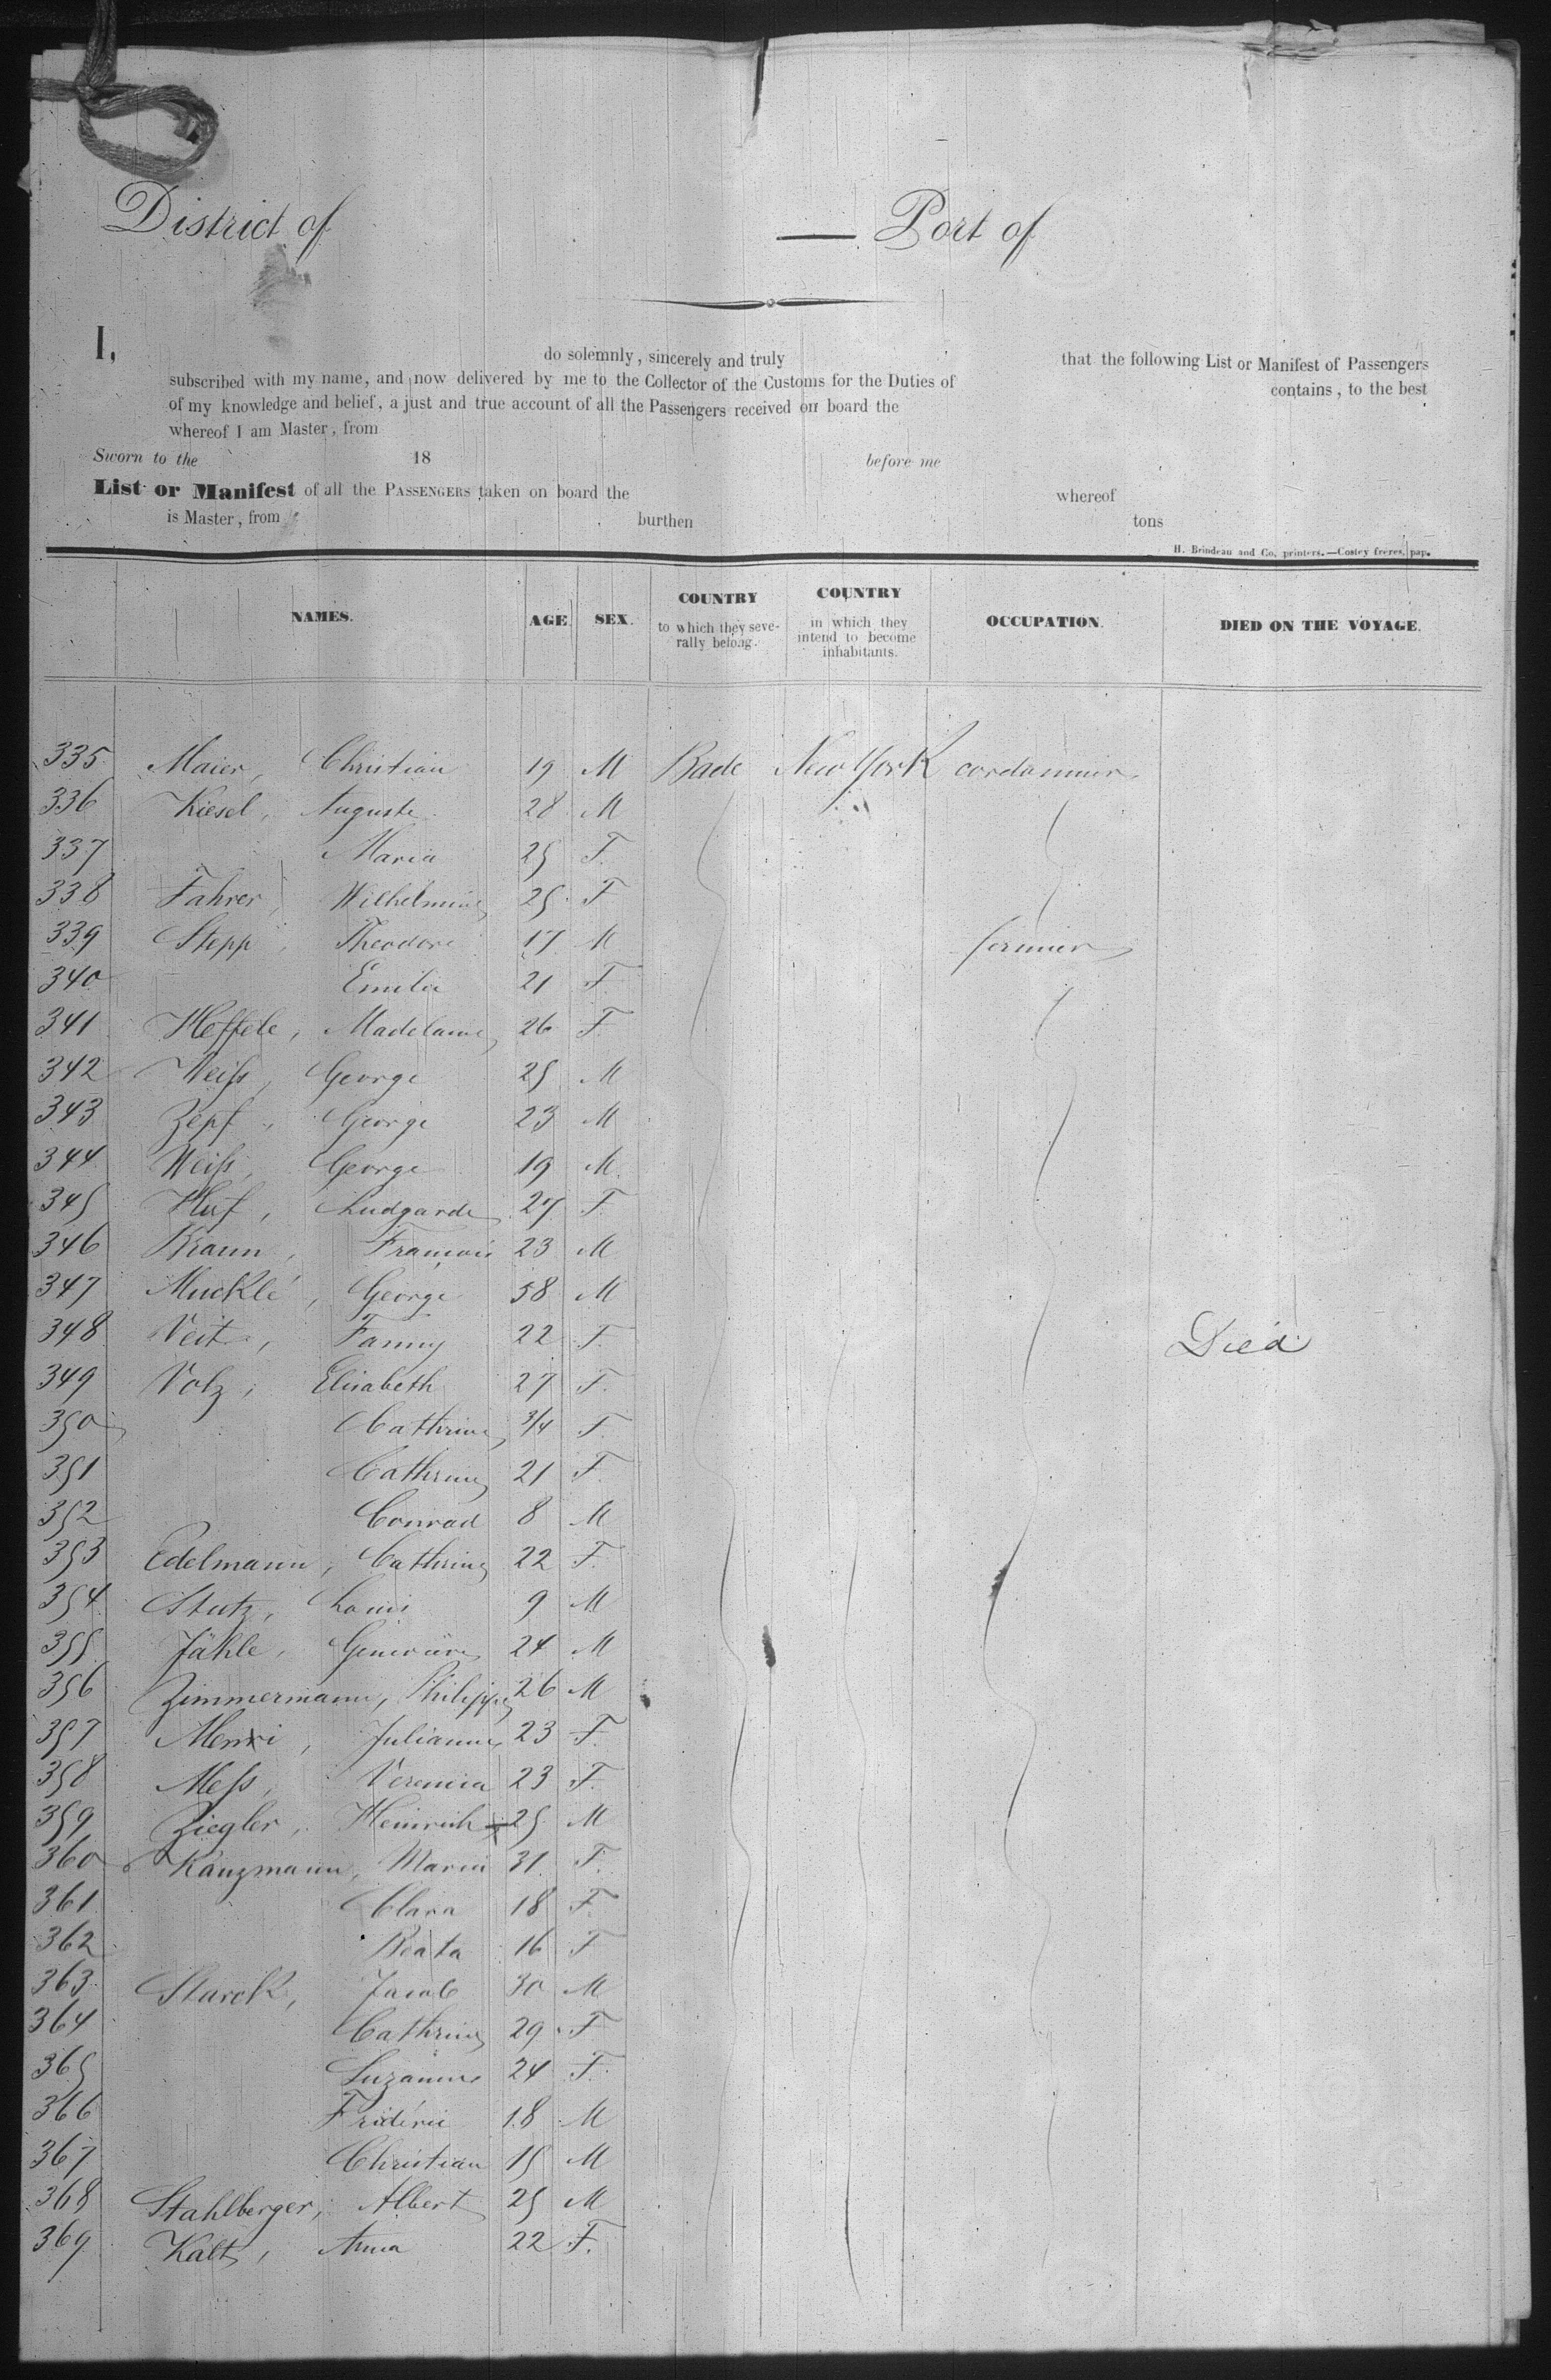 District of — Port of
I, do solemnly, sincerely and truly that the following List or Manifest of Passengers
subscribed with my name, and now delivered by me to the Collector of the Customs for the Duties of contains, to the best
of my knowledge and belief, a just and true account of all the Passengers received on board the
whereof I am Master, from
Sworn to the 18 before me
List or Manifest of all the PASSENGERS taken on board the whereof
is Master, from burthen tons
H. Brindeau and Co, printers.—Costey freres, pap.
NAMES. AGE. SEX. COUNTRY to which they severally belong. COUNTRY in which they intend to become inhabitants. OCCUPATION. DIED ON THE VOYAGE.
335 Maier, Christian 19 M Bade New York cordonnier
336 Kiesel, Auguste 28 M
337 Maria 25 F.
338 Fahrer, Wilhelmine 25 F
339 Stepp, Theodore 17 M fermier
340 Emilie 21 F.
341 Heffele, Madelaine 26 F.
342 Weiß, George 25 M
343 Zepf, George 23 M
344 Weiß, George 19 M.
345 Huf, Ludgarde 27 F.
346 Braun, François 23 M
347 Mucklé, George 58 M
348 Veit, Fanny 22 F. Died
349 Volz, Elisabeth 27 F.
350 Cathrine 3/4 F.
351 Cathrine 21 F.
352 Conrad 8 M
353 Edelmann, Cathrine 22 F.
354 Stutz, Louis 9 M
355 Jähle, 24 M
356 Zimmermann, Philippe 26 M
357 Julianne 23 F.
358 Meß, Veronica 23 F.
359 Ziegler, Heinrich 25 M
360 Kanzmann, Maria 31 F.
361 Clara 18 F.
362 Beata 16 F
363 Starck, Jacob 30 M
364 Cathrine 29 F
365 Suzanne 24 F.
366 Fridéric 18 M
367 Christian 15 M
368 Stahlberger, Albert 25 M
369 Kalt, Anna 22 F.